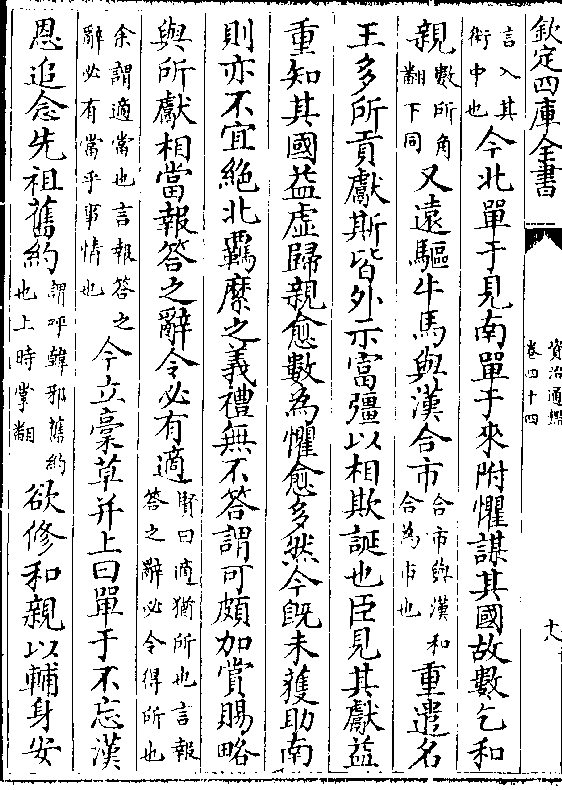 欽定四庫全書
資治通鑑
卷四十四
十八
言入其
術中也
今北單于見南單于來附懼謀其國故數乞和
親
數所角
翻下同
又遠驅牛馬與漢合市
合市與漢和
合為市也
重遣名
王多所貢獻斯皆外示富彊以相欺誕也臣見其獻益
重知其國益虛歸親愈數為懼愈多然今既未獲助南
則亦不宜絶北羈縻之義禮無不答謂可頗加賞賜略
與所獻相當報答之辭令必有適
賢曰適猶所也言報
答之辭必令得所也
余謂適當也言報答之
辭必有當乎事情也
今立稾草并上曰單于不忘漢
恩追念先祖舊約
謂呼韓邪舊約
也上時掌翻
欲修和親以輔身安